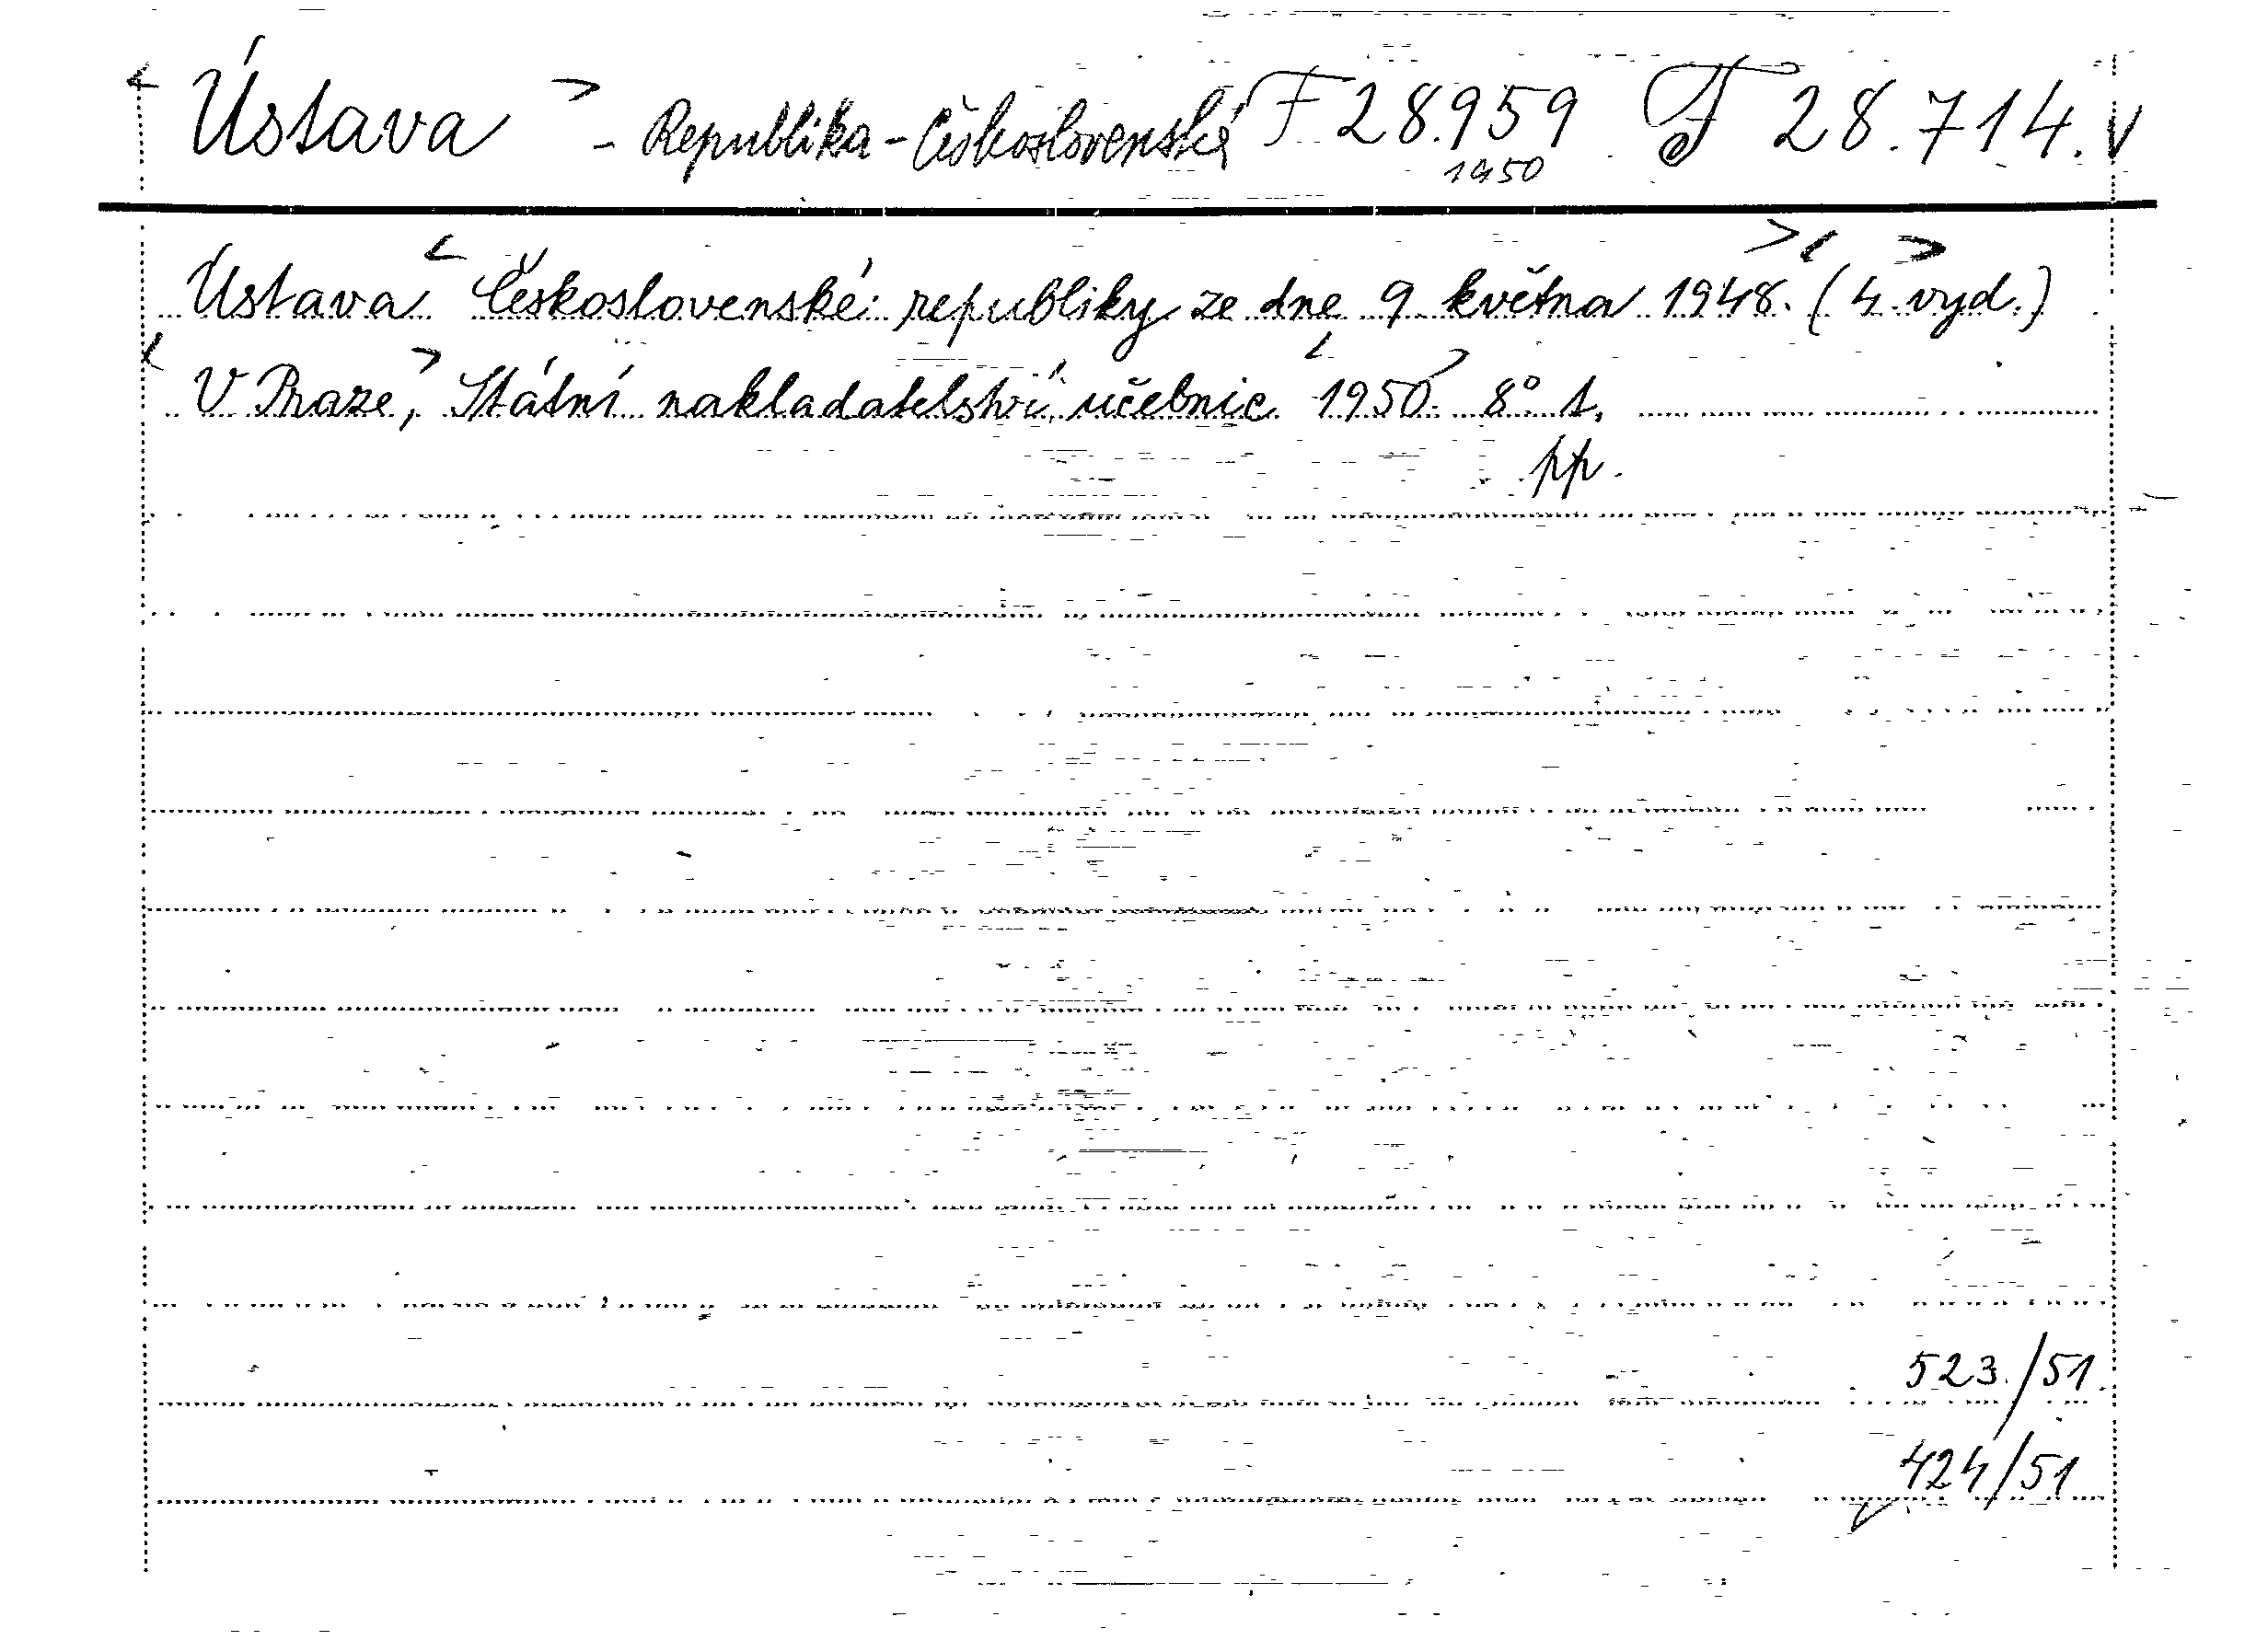 < Ústava > - Republika - Československá F 28.959 F 28.714. V
1950
Ústava < Československé republiky ze dne 9 května 1948. > < (4. vyd.) >
< V Praze, > Státní nakladatelství učebnic < 1950. > 8° 1,
pp.
523./51.
424/51